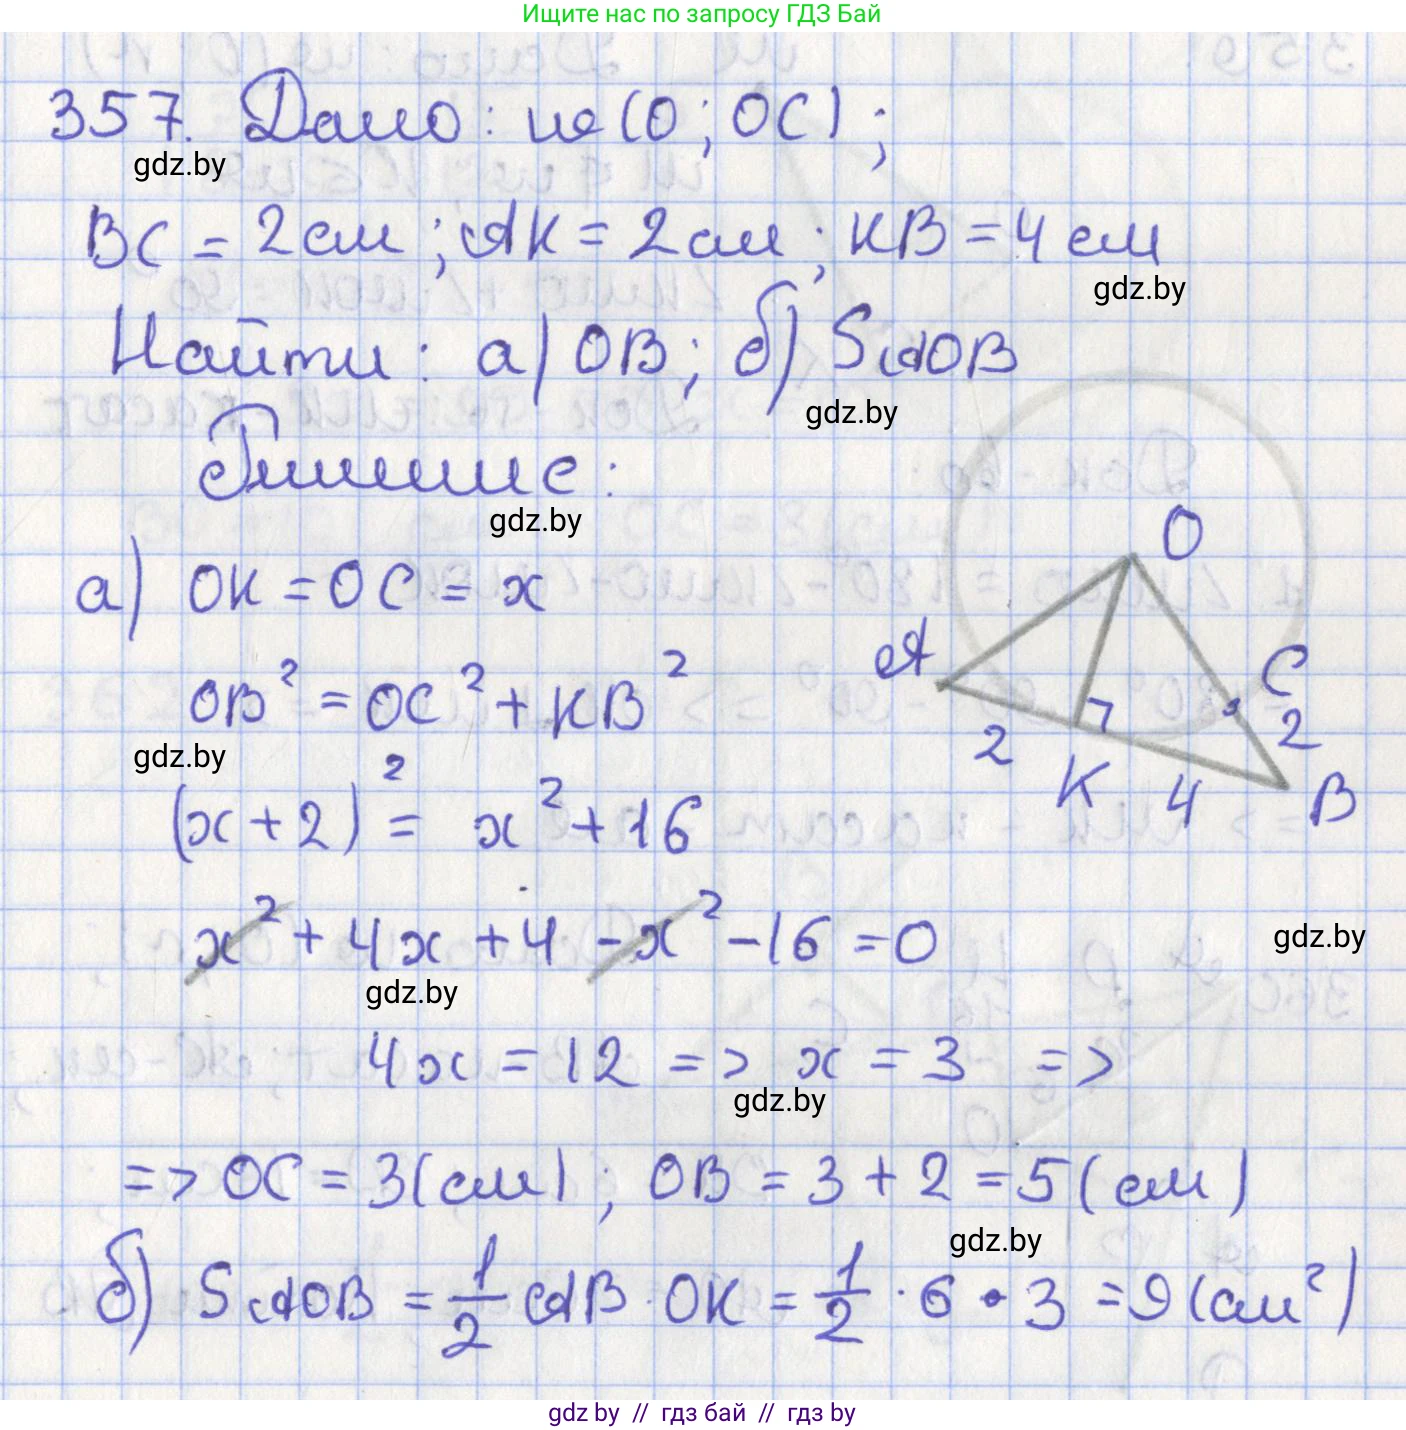 Ищите нас по запросу ГДЗ Бай
357. Дано: w (O; OC);
gdz.by
BC = 2 см; AK = 2 см; KB = 4 см
gdz.by
Найти: а) OB; б) SAOB
gdz.by
Решение:
gdz.by
а) OK = OC = x
OB² = OC² + KB²
gdz.by
(x + 2)² = x² + 16
x² + 4x + 4 - x² - 16 = 0
gdz.by
gdz.by
4x = 12 => x = 3 =>
gdz.by
=> OC = 3 (см); OB = 3 + 2 = 5 (см)
gdz.by
б) SAOB = 1/2 AB · OK = 1/2 · 6 · 3 = 9 (см²)
O
A
C
2
2
K
4
B
gdz by // гдз бай // гдз by